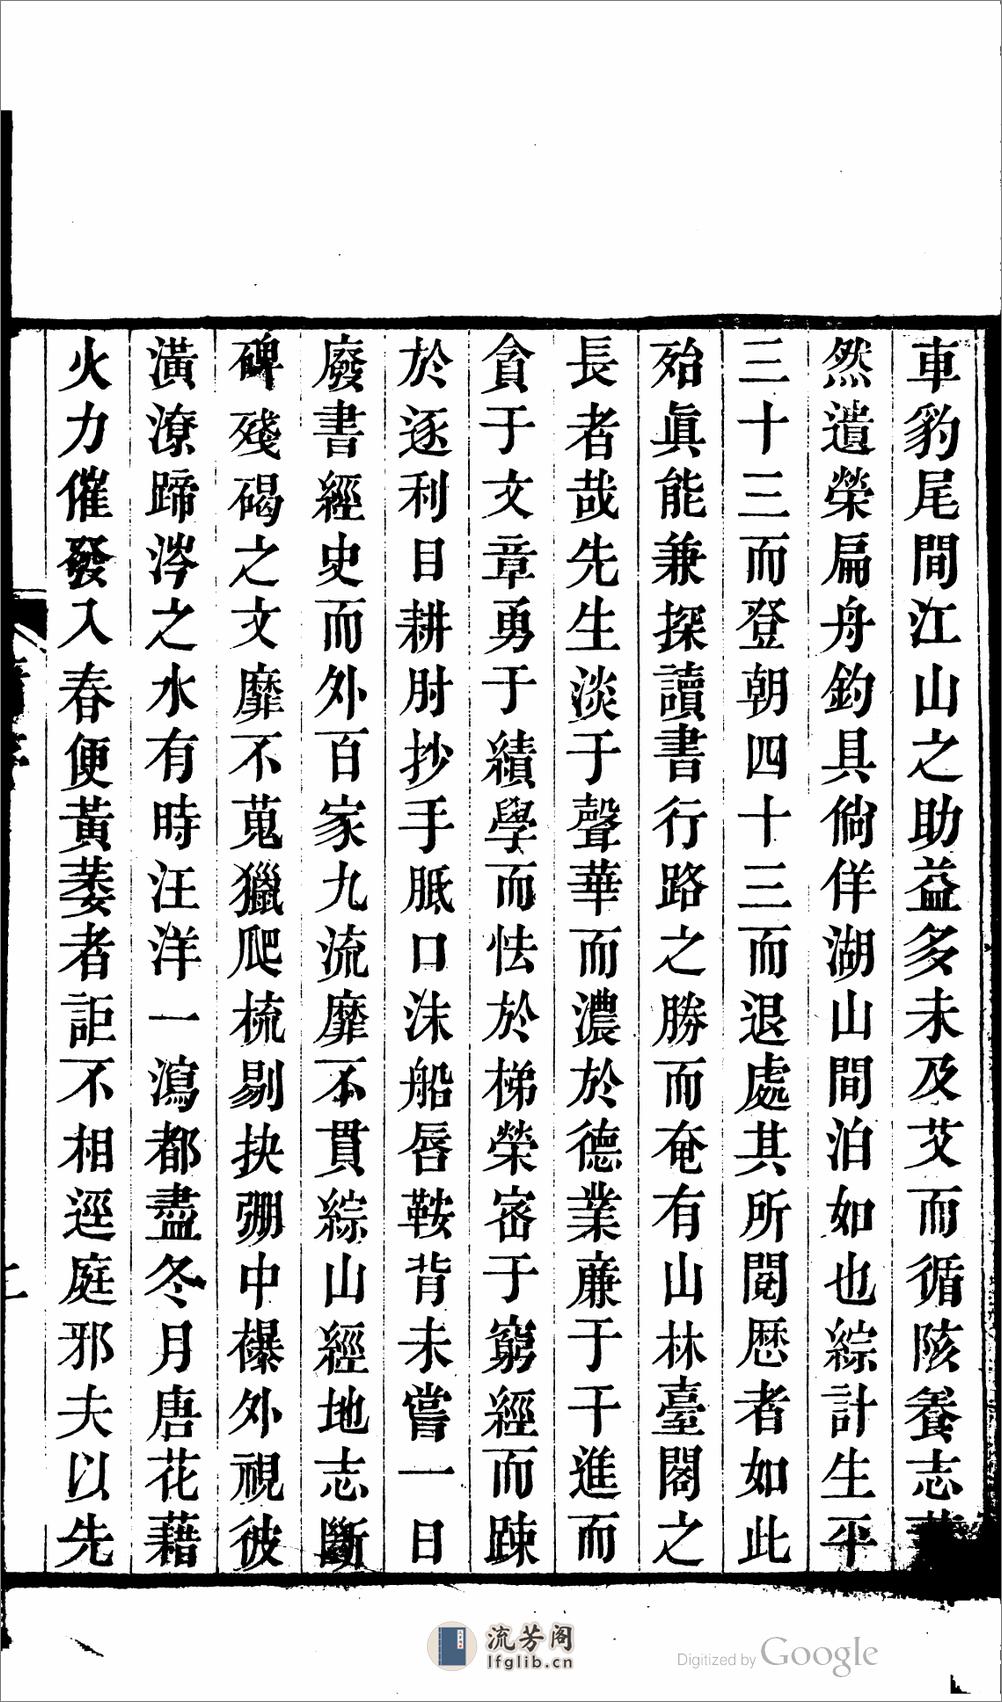 車豹尾間江山之助益多未及艾而循陔養志
然遺榮扁舟釣具倘佯湖山間泊如也綜計生平
三十三而登朝四十三而退處其所閱歷者如此
殆眞能兼探讀書行路之勝而奄有山林臺閣之
長者哉先生淡于聲華而濃於德業亷于干進而
貪于文章勇于績學而怯於梯榮宻于窮經而踈
於逐利目耕肘抄手胝口沫船唇鞍背未嘗一日
廢書經史而外百家九流靡不貫綜山經地志斷
碑殘碣之文靡不蒐獵爬梳剔抉弸中襮外視彼
潢潦蹄涔之水有時汪洋一瀉都盡冬月唐花藉
火力催發入春便黃萎者詎不相逕庭邪夫以先
流芳阁
lfglib.cn
Digitized by Google